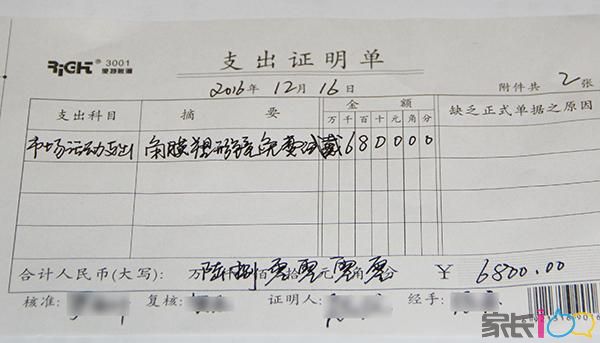 RiGHT® 3001 支出证明单
2016年 12月 16日 附件共 2 张
支出科目 摘要 金额 缺乏正式单据之原因
万千百十元角分
市场活动支出 角膜塑形镜免费试戴 680000
合计人民币(大写): 万陆仟捌佰零拾零元零角零分 ¥ 6800.00
核准: 复核: 证明人: 经手:
家长100